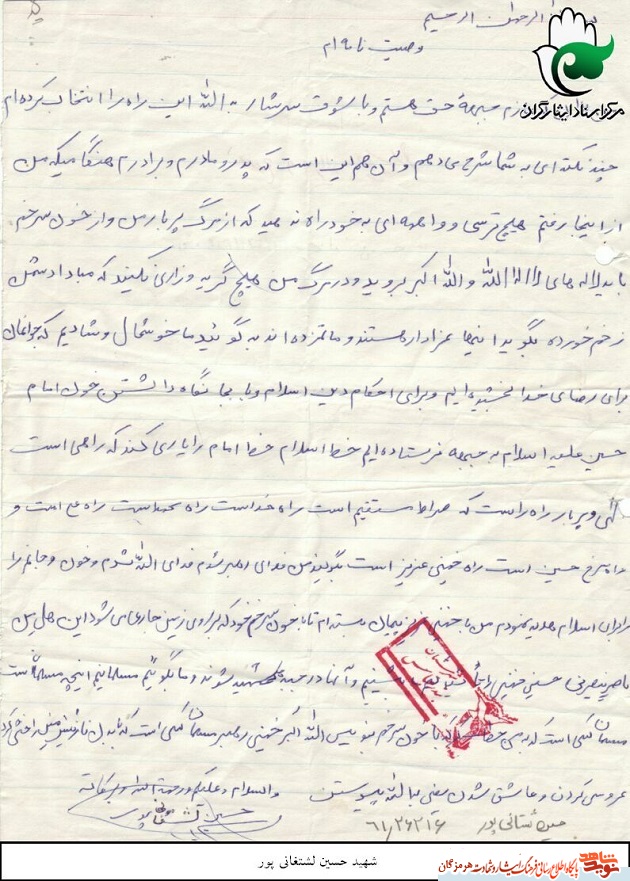 بسم الله الرحمن الرحیم
وصیت نامه ام
مرکز اسناد ایثارگران
جبههٔ حق هستم و با شوق سرشار به الله این راه را انتخاب کرده ام
چند نکته ای به شما شرح می دهم و آن هم این است که پدر و مادرم و برادرم هنگامیکه من
از اینجا رفتم هیچ ترسی و واهمه ای به خود راه ندهید که از مرگ پربار من و از خون سرخم
باید لاله های لااله الاالله والله اکبر بروید و در مرگ من هیچ گریه وزاری نکنید که مبادا دشمن
زخم خورده بگوید اینها عزادار هستند و ماتمزده اند بگوئید ما خوشحال و شادیم که جوانمان
برای رضای خدا بخشیده ایم و برای احکام دین اسلام و با بجا نگاه داشتن خون امام
حسین علیه اسلام به جبهه فرستاده ایم خط اسلام خط امام را یاری کند که راهی است
الهی و پربار راه راست که صراط مستقیم است راه خداست راه محمد است راه علی است و
راه سرخ حسین است راه خمینی عزیز است بگوئید من فدای رهبر شدم فدای الله شدم و خون و جانم را
برای اسلام هدیه نمودم من با خمینی پیمان بسته ام تا با خون سرخم خود که بر روی زمین جاری می شود این هل من
ناصر ینصرنی حسین خمینی را و آنها در جبهه شهید شوند و ما بگوئیم مسلمانیم اینچه مسلمانست
مسلمان کسی است که خون سرخم بنویس الله اکبر خمینی رهبر مسلمان کسی است که
عروسی کردن و عاشق شدن یعنی به الله پیوستن
والسلام و علیکم و رحمة الله و برکاته
حسین لشتغانی پور
۶۱/۲۶۲۱۶
شهید حسین لشتغانی پور
نوید شاهد پایگاه اطلاع رسانی فرهنگ ایثار و شهادت هرمزگان